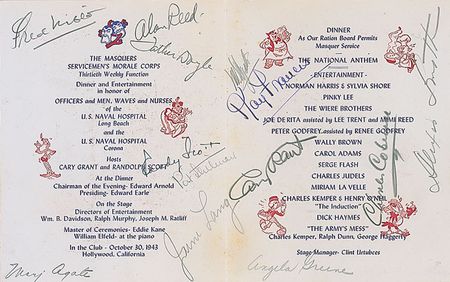 Fred Niblo
Alan Reed-
Father Doyle
THE MASQUERS
SERVICEMEN'S MORALE CORPS
Thirtieth Weekly Function
Dinner and Entertainment
in honor of
OFFICERS and MEN, WAVES and NURSES
of the
U. S. NAVAL HOSPITAL
Long Beach
and the
U. S. NAVAL HOSPITAL
Corona
Hosts
CARY GRANT and RANDOLPH SCOTT
At the Dinner
Chairman of the Evening- Edward Arnold
Presiding- Edward Earle
On the Stage
Directors of Entertainment
Wm. B. Davidson, Ralph Murphy, Joseph M. Ratliff
Master of Ceremonies- Eddie Kane
William Elfeld- at the piano
In the Club - October 30, 1943
Hollywood, California
DINNER
As Our Ration Board Permits
Masquer Service -
THE NATIONAL ANTHEM
- ENTERTAINMENT-
NORMAN HARRIS & SYLVIA SHORE
PINKY LEE
THE WIERE BROTHERS
JOE DE RITA assisted by LEE TRENT and MIMI REED
PETER GODFREY assisted by RENEE GODFREY
WALLY BROWN
CAROL ADAMS
SERGE FLASH
CHARLES JUDELS
MIRIAM LA VELLE
CHARLES KEMPER & HENRY O'NEILL
"The Induction"
DICK HAYMES
"THE ARMY'S MESS"
Charles Kemper, Ralph Dunn, George Haggerty
Stage Manager- Clint Urtubees
Kay Francis
Cary Grant
Charles Coburn
Alexis Smith
June Lang
Angela Greene